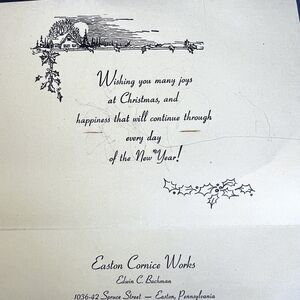 Wishing you many joys
at Christmas, and
happiness that will continue through
every day
of the New Year!
Easton Cornice Works
Edwin C. Bachman
1036-42 Spruce Street — Easton, Pennsylvania